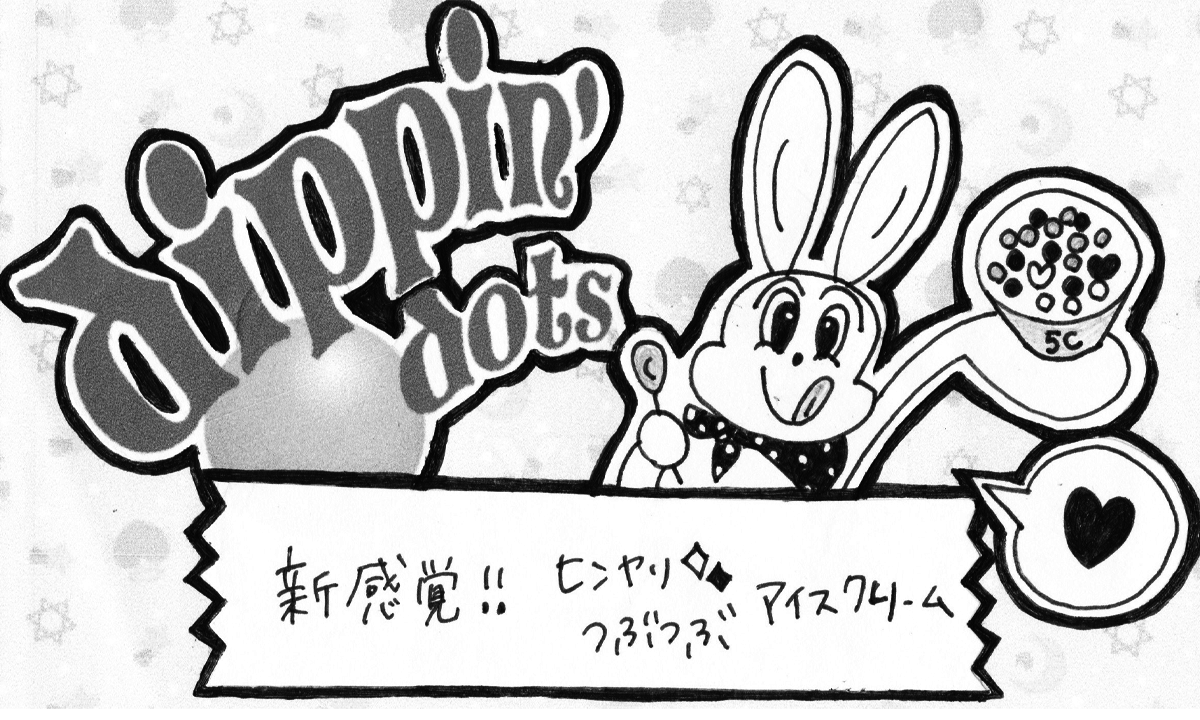 dippin'
dots
5C
新感覚!!
ヒンヤリ
つぶつぶ
アイスクリーム